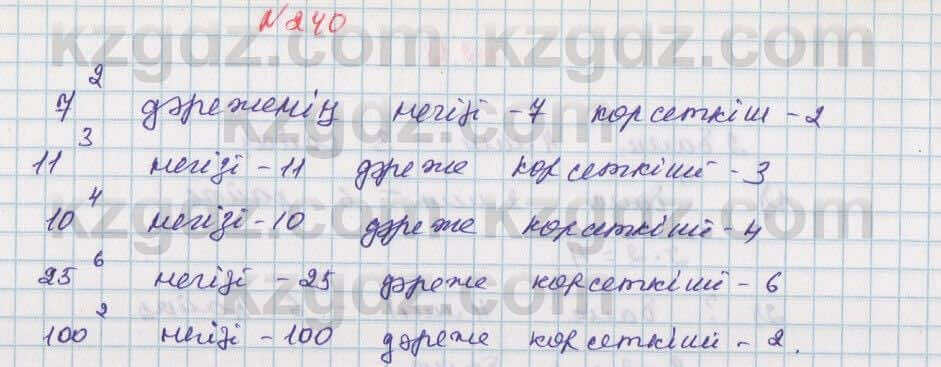 №240
7² дәреженің негізі - 7 көрсеткіш - 2
11³ негізі - 11 дәреже көрсеткіші - 3
10⁴ негізі - 10 дәреже көрсеткіші - 4
25⁶ негізі - 25 дәреже көрсеткіші - 6
100² негізі - 100 дәреже көрсеткіші - 2.
kzgdz.com kzgdz.com